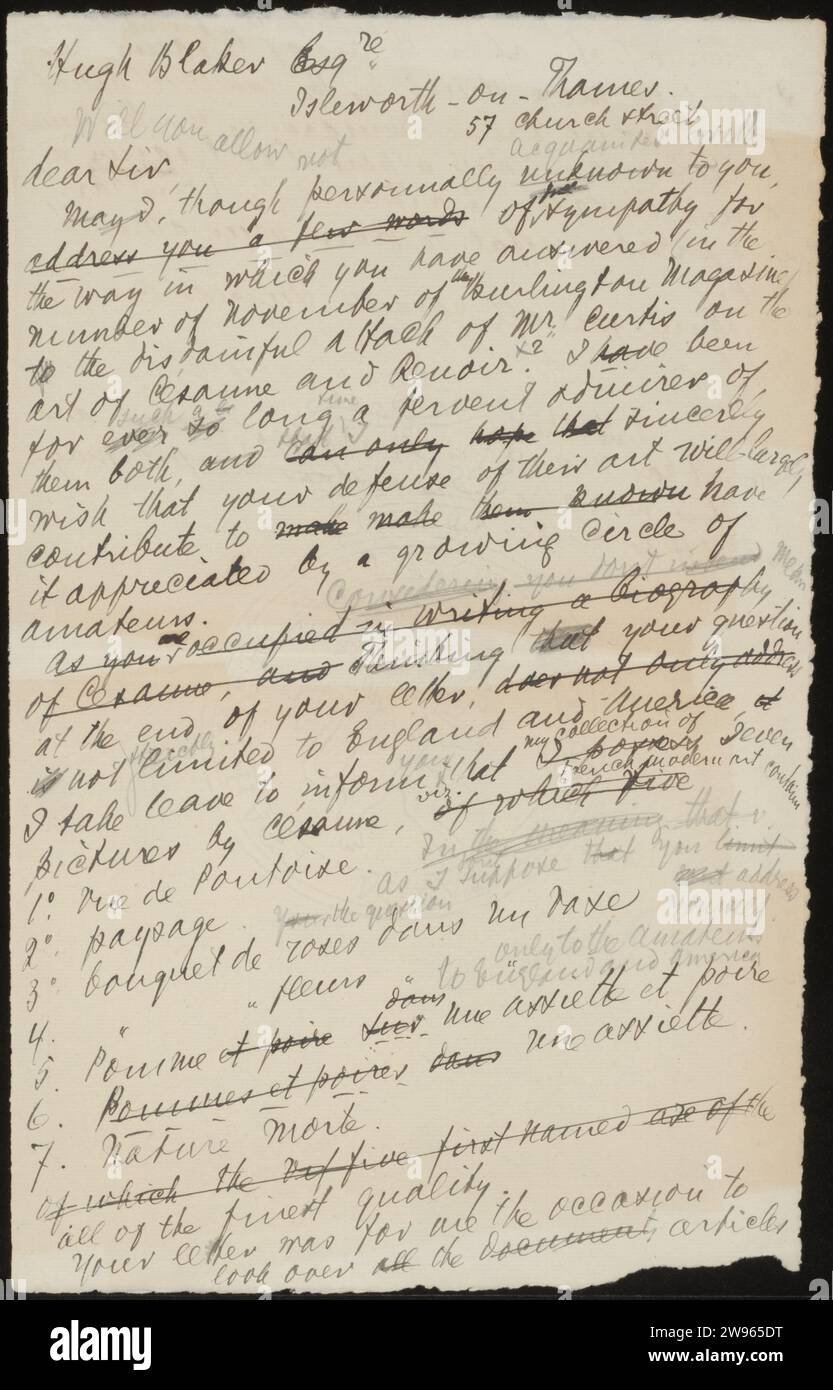 Hugh Blaker Esqre
Isleworth - on - Thames.
57 Church street
Will you allow not
acquainted with
dear Sir
May I, though personnally unknown to you,
address you a few words of sympathy for
the way in which you have answered (in the
number of november of the Burlington Magazine)
to the disdainful attack of Mr. Curtis on the
art of Césanne and Renoir." I have been
for ever so long a fervent admirer of
such a time
them both, and can only hope that sincerely
wish that your defense of their art will largely
contribute to make make them known have
it appreciated by a growing circle of
amateurs.
Considering you don't intend
As you're occupied in writing a biography
of Césanne, and thinking that your question
at the end of your letter, does not only address
is not limited to England and America, it
directly you my collection of
I take leave to inform that I possess seven
french modern art contain
pictures by Césanne, viz. of which five
In the meaning that
1º. rue de Pontoise.
as I suppose that you limit
2º. paysage.
not address
your the question
3º bouquet de roses dans un vase
only to the amateurs
4. " " fleurs " "
to England and America
5. Pomme et poire sur dans une assiette et poire
6. Pommes et poires dans une assiette.
7. Nature morte.
of which the five first named are of the
all of the finest quality.
Your letter was for me the occasion to
look over all the document articles
alamy
Image ID: 2W965DT
www.alamy.com